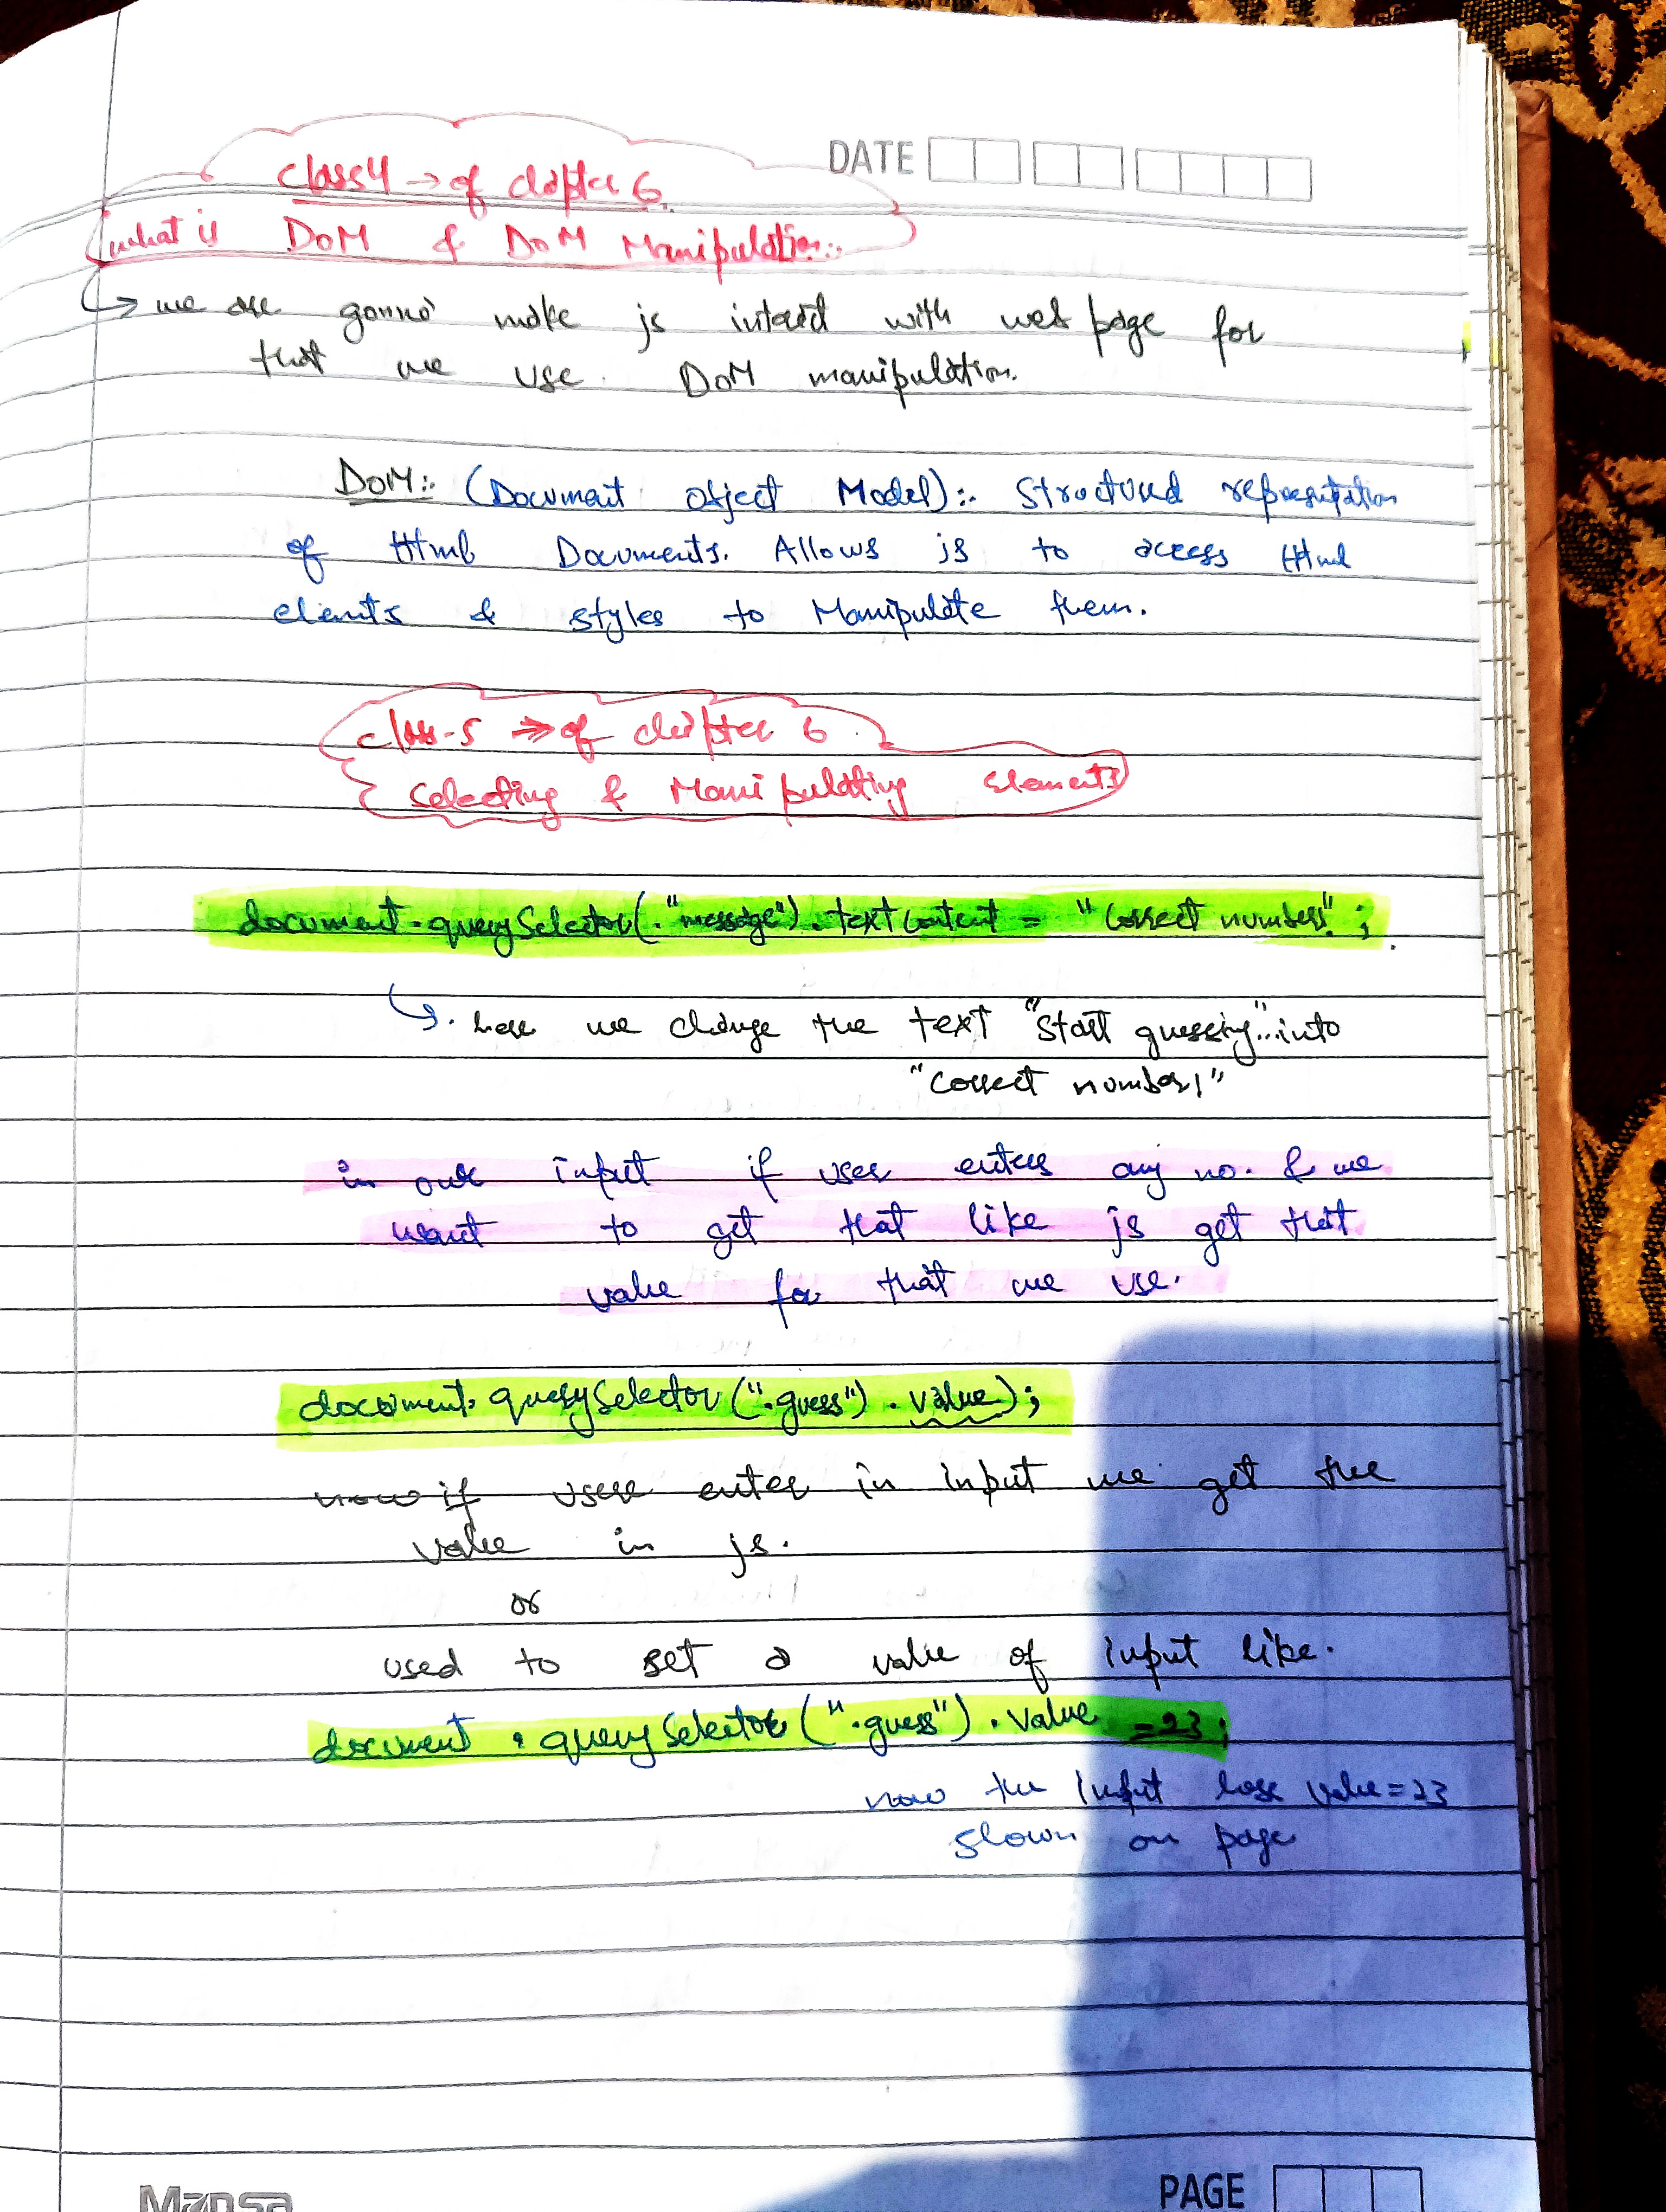 DATE
class 4 → of chapter 6.
what is DOM & DOM Manipulation:.
↳ we are gonna make js interact with web page for
that we use. DOM manipulation.
DOM:. (Document Object Model):. Structured representation
of Html Documents. Allows js to access Html
elements & styles to Manipulate them.
class-5 ⇒ of chapter 6.
Selecting & Manipulating Elements
document.querySelector(."message").textContent = "Correct number!";
↳. here we change the text "Start guessing... into
"Correct number!"
in our input if user enters any no. & we
want to get that like js get that
value for that we use.
document.querySelector(".guess").value);
now if user enter in input we get the
value in js.
or
used to set a value of input like.
document.querySelector(".guess").value =23;
now the input have value=23
shown on page
Mansa
PAGE